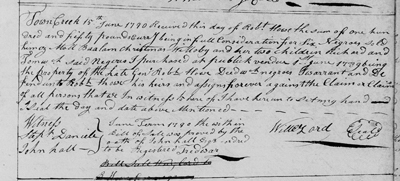 Town Creek 15th June 1790 Received this day of Robt Howe the sum of one hun
dred and fifty pounds being in full Consideration for Six Negroes
Moll Balam Christmas and her two children Richard and
Tom which said Negroes I purchased at publick vendue 5th June 1789 being
the Property of the late Genl Robert Howe Decd Negroes I warrant and De
fend unto Robt Howe his heirs and assigns forever against the Claim or Claims
of all Persons that In witness whereof I have hereunto set my hand and
Seal the day and date above Mentioned
Witness
Daniell
John hall
June Term 1790 the within
Bill of Sale was proved by the
oath of John hall Esqr & ordred
to be Registered
Will Lord Seal